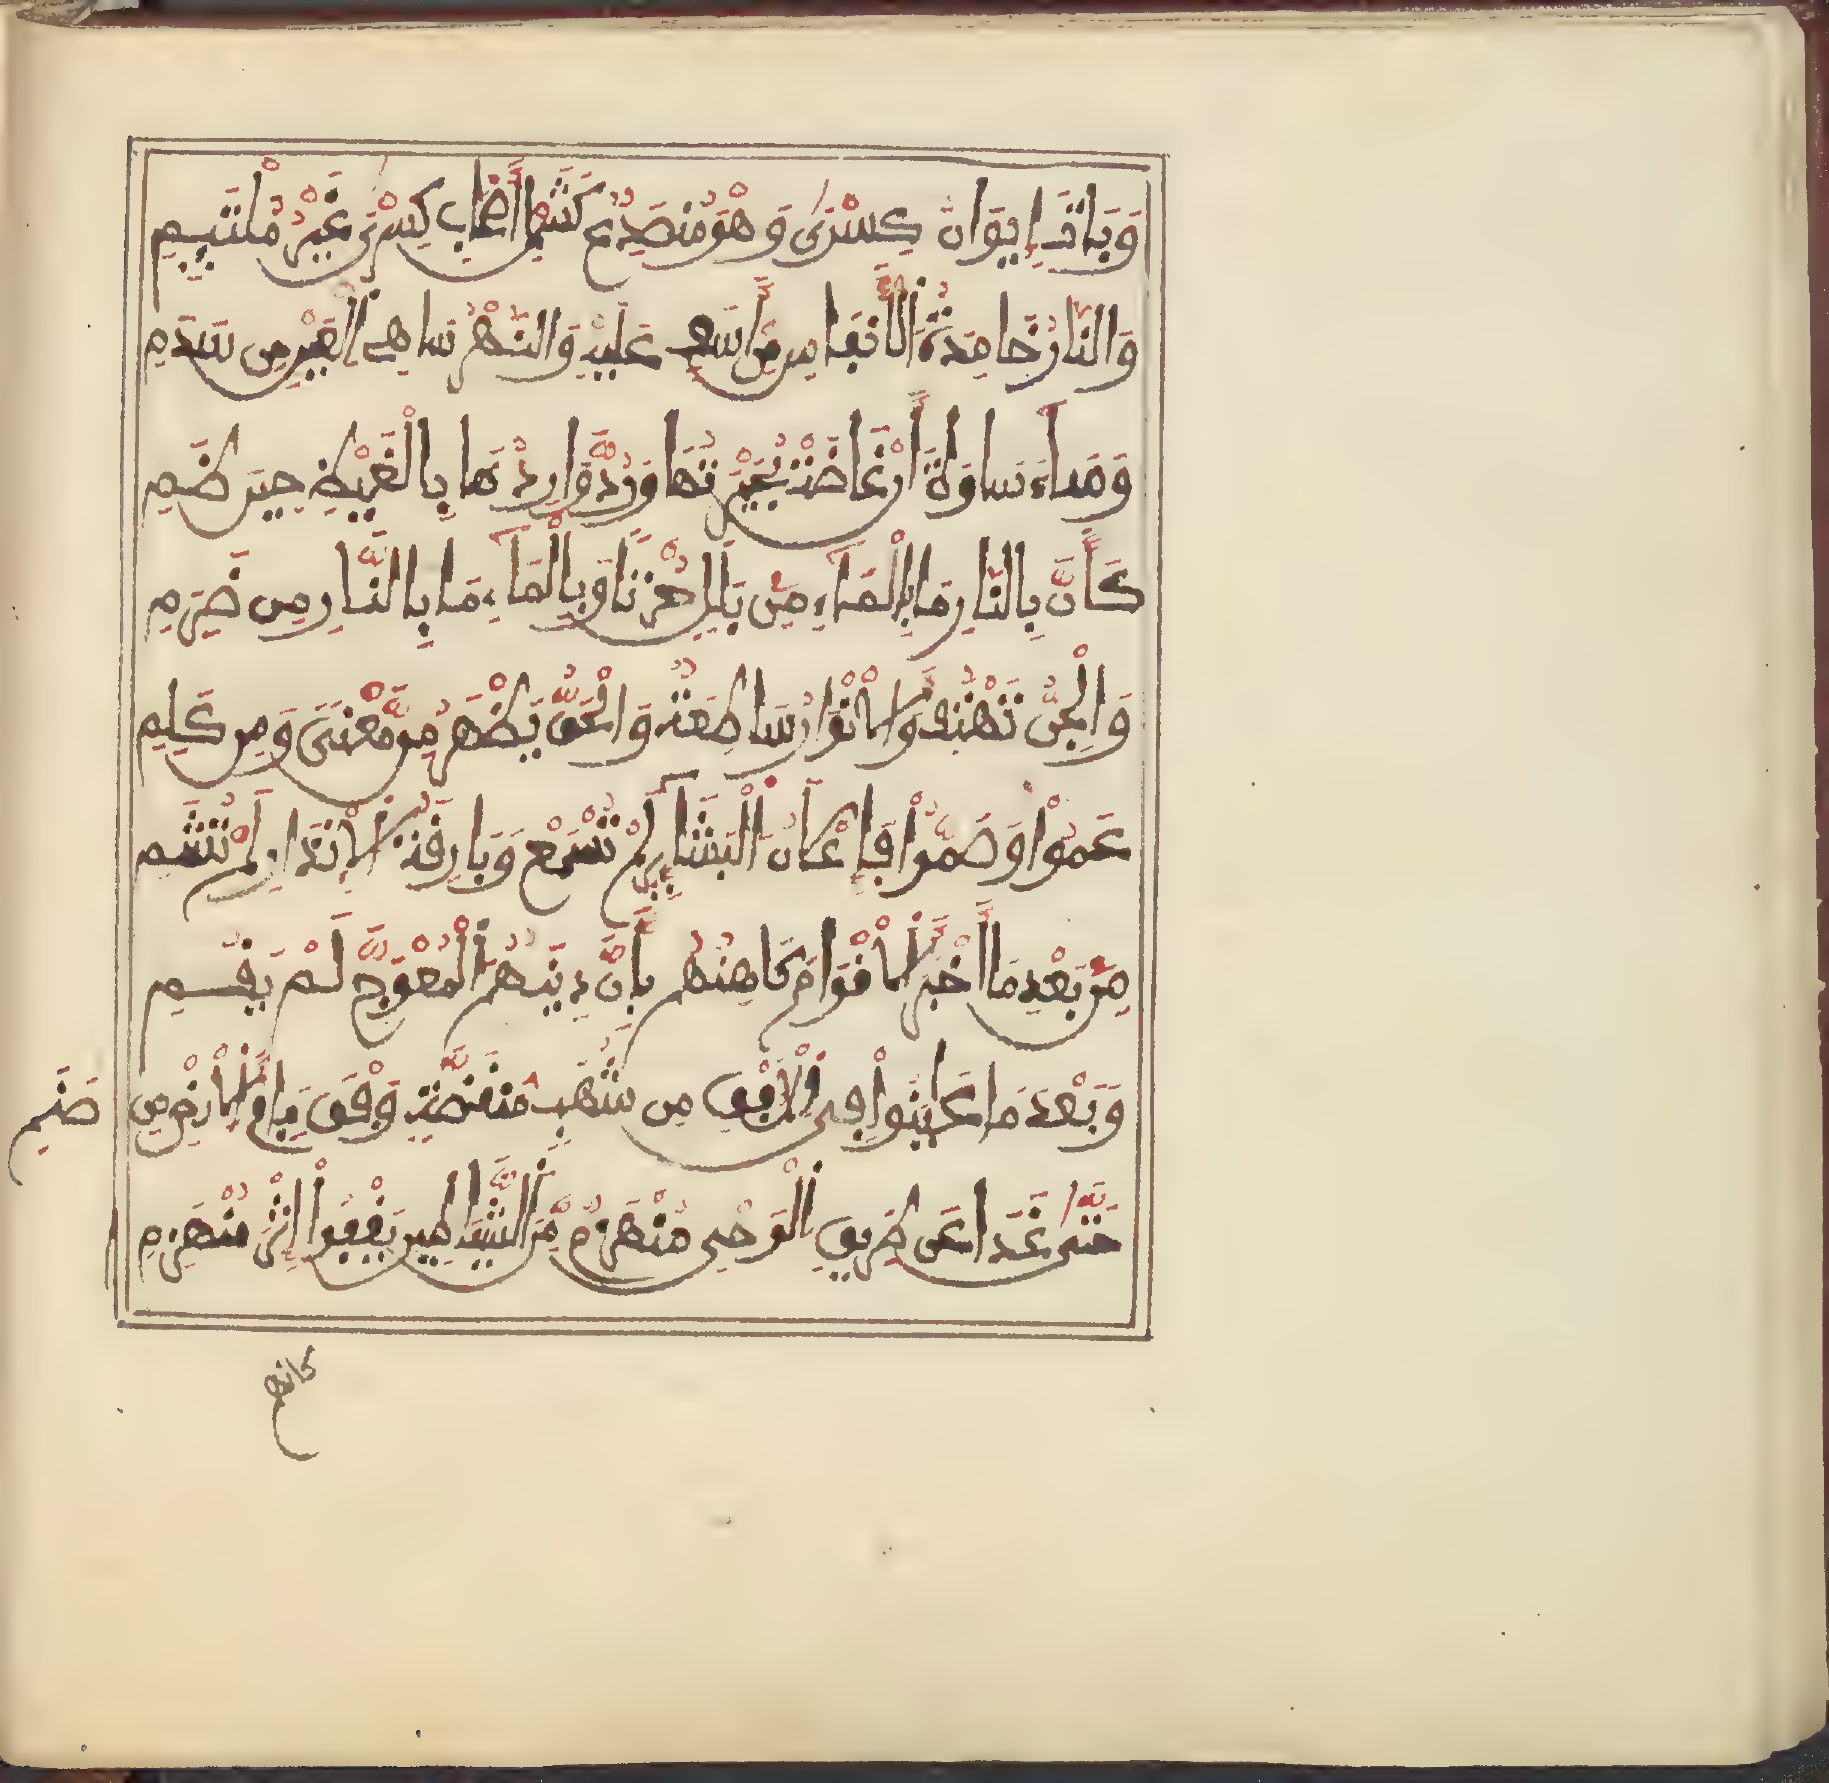 وَبَاتَ إِيوَانُ كِسْرَىٰ وَهْوَ مُنصَدِعٌ كَشَمْلِ أَصْحَابِ كِسْرَىٰ غَيْرُ مُلْتَئِيمِ
وَالنَّارُ خَامِدَةُ الْأَنفَاسِ مِنْ أَسَفٍ عَلَيْهِ وَالنَّهْرُ سَاهِي الْعَيْنِ مِن سَدَمِ
وَسَاءَ سَاوَةَ أَنْ غَاضَتْ بُحَيْرَتُهَا وَرُدَّ وَارِدُهَا بِالْغَيْظِ حِينَ ظَمِ
كَأَنَّ بِالنَّارِ مَا بِالْمَاءِ مِنْ بَلَلٍ حُزْنًا وَبِالْمَاءِ مَا بِالنَّارِ مِن ضَرَمِ
وَالْجِنُّ تَهْتِفُ وَالْأَنْوَارُ سَاطِعَةٌ وَالْحَقُّ يَظْهَرُ مِن مَّعْنَىً وَمِن كَلِمِ
عَمُوا وَصَمُّوا فَإِعْلَانُ الْبَشَائِرِ لَمْ تُسْمَعْ وَبَارِقَةُ الْإِنذَارِ لَمْ تُشَمِ
مِنْ بَعْدِ مَا أَخْبَرَ الْأَقْوَامَ كَاهِنُهُم بِأَنَّ دِينَهُمُ الْمُعْوَجَّ لَمْ يَقُمِ
وَبَعْدَ مَا عَايَنُوا فِي الْأُفْقِ مِن شُهُبٍ مُنقَضَّةٍ وَفْقَ مَا فِي الْأَرْضِ مِن صَنَمِ
حَتَّىٰ غَدَا عَن طَرِيقِ الْوَحْيِ مُنْهَزِمٌ مِّنَ الشَّيَاطِينِ يَقْفُوا إِثْرَ مُنْهَزِمِ
كانهم